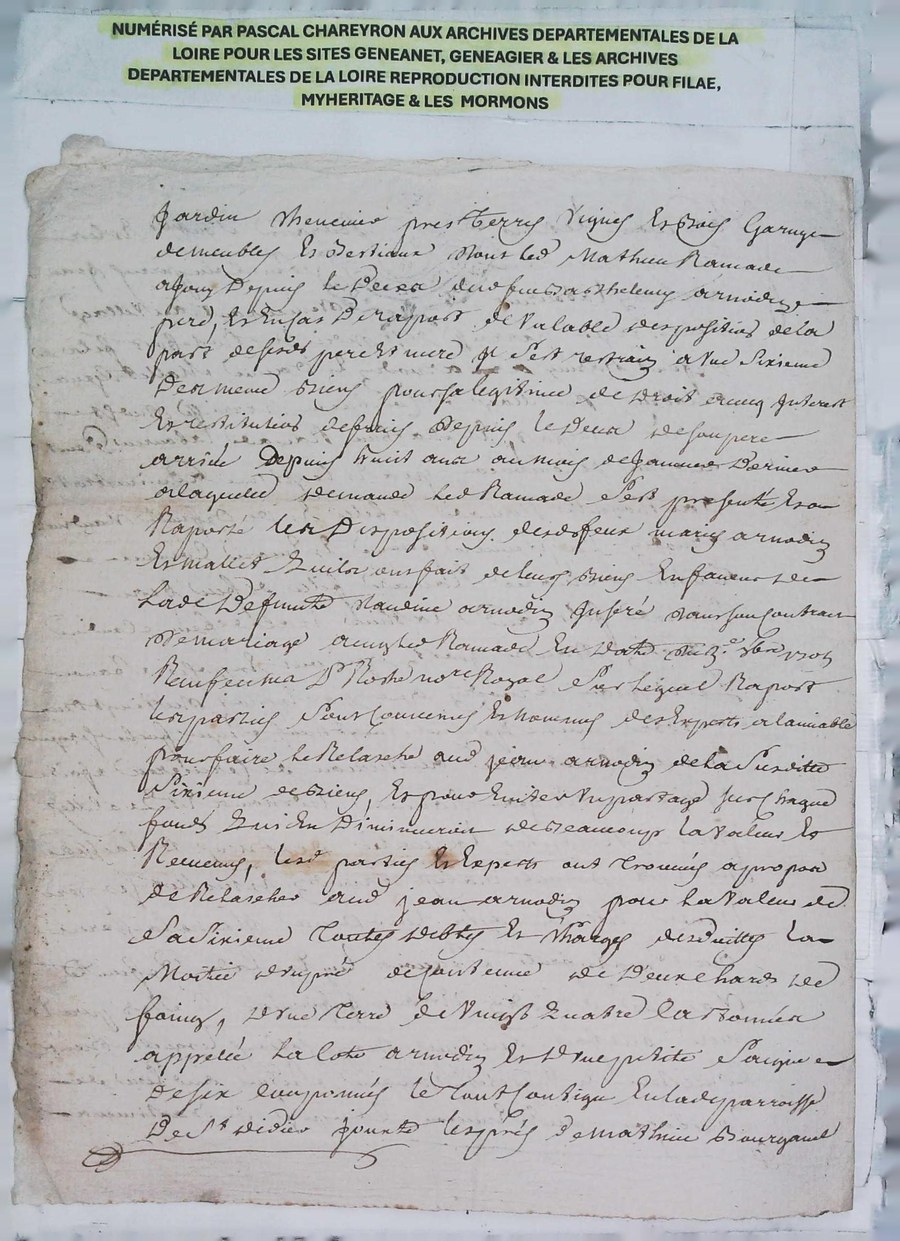 NUMÉRISÉ PAR PASCAL CHAREYRON AUX ARCHIVES DEPARTEMENTALES DE LA
LOIRE POUR LES SITES GENEANET, GENEAGIER & LES ARCHIVES
DEPARTEMENTALES DE LA LOIRE REPRODUCTION INTERDITES POUR FILAE,
MYHERITAGE & LES MORMONS
Jardin pres terres vignes et bois
de meubles et bestiaux dont led Mathieu Ramade
a jouy depuis le deces
pere, et en cas de raport de valable disposition de la
part desdts pere et mere il s'est restraint a une sixieme
des meme biens pour sa legitime de droit avecq interest
et restitution de fruis depuis le deces de son pere
arrivé depuis huit ans au mois de janvier dernier
a laquelle demande led Ramade s'est presenté et a
raporté les dispositions desds feux maries arnodin
et mallet qu'ils ont fait de leurs biens en faveur de
lade deffunte arnodin inseré dans son contrat
de mariage avecq led Ramade en date du
Receu par me Royal sur lequel raport
les parties sont convenus et nommés des experts a lamiable
pour faire le relasche aud jean arnodin de la susditte
sixieme de biens, et pour eviter un partage sur chaque
fonds qui en diminueroit de beaucoup la valeur et
revenus, lesd parties et experts ont trouvés a propos
de relascher aud jean arnodin pour la valeur de
sa sixieme touttes debtes et charges la
moitié d'un pré de contenue de deux chards de
foing, d'une terre de vingt quatre
appelée la cote arnodin et d'une petite
de six le tout contigue en lade parroisse
De St didier jouxte les prés de mathieu